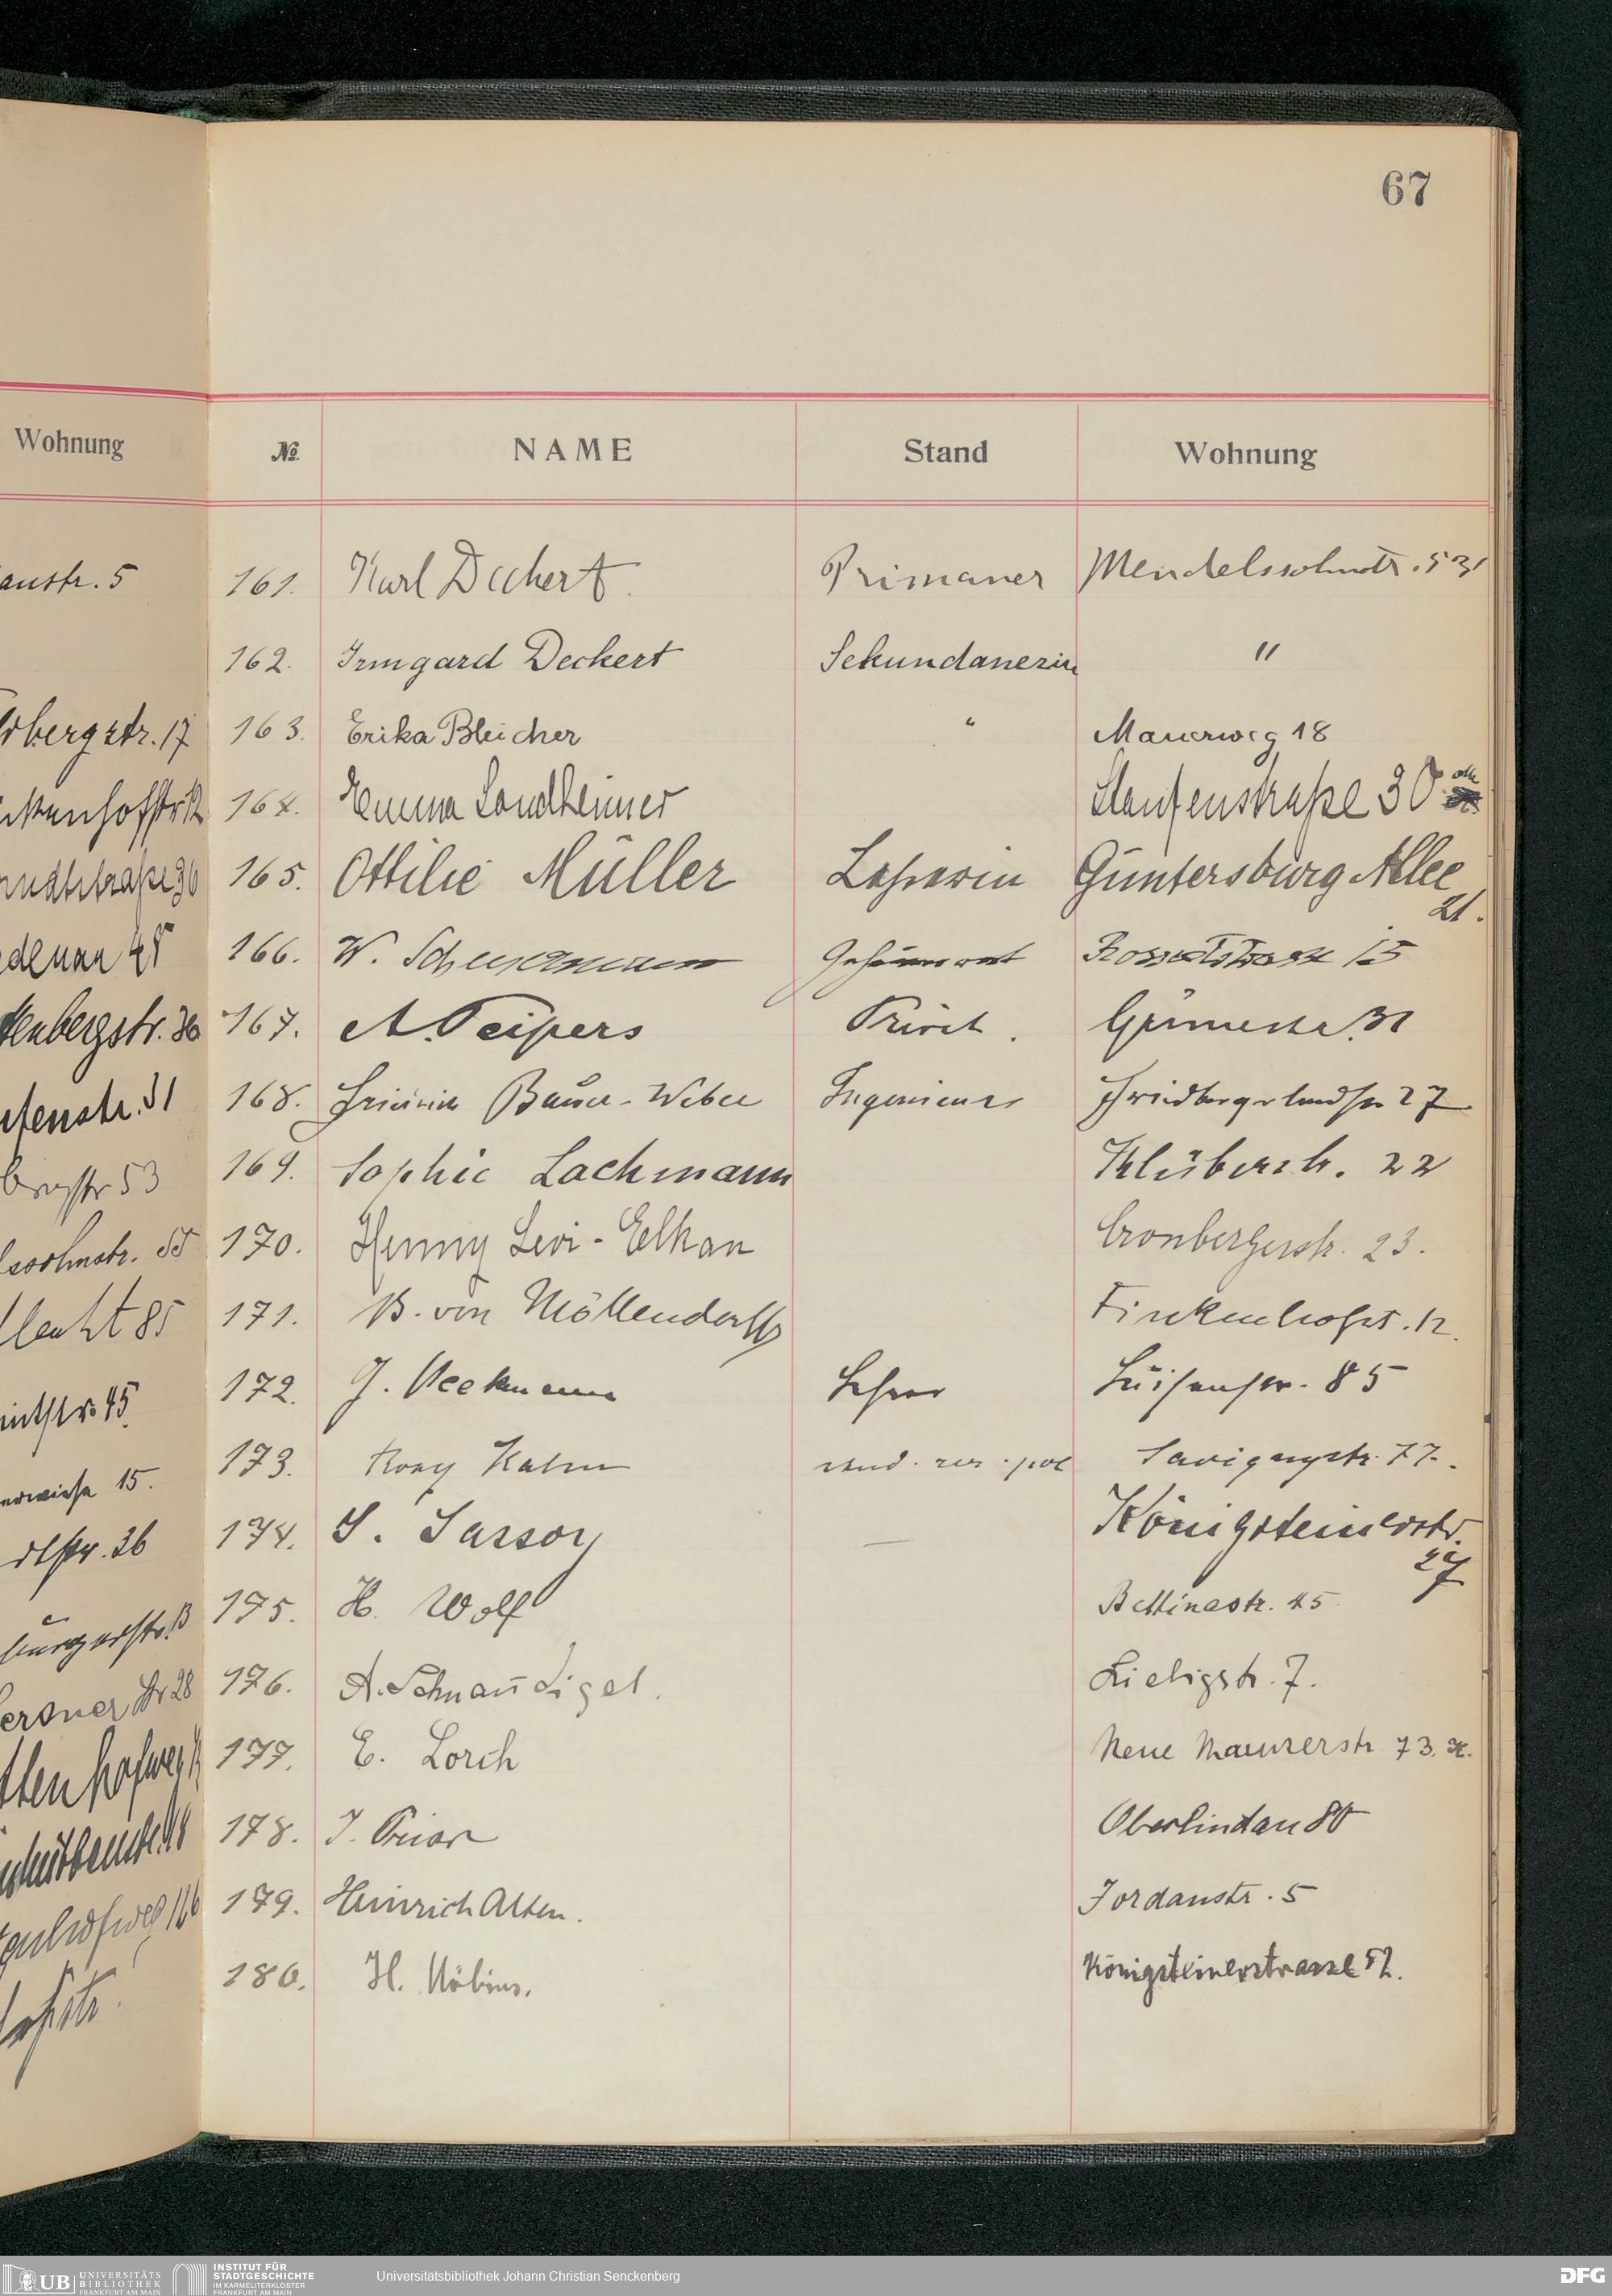 67
Wohnung
№ NAME Stand Wohnung
anstr. 5
161. Karl Deckert. Primaner Mendelssohnstr. 53
162. Irmgard Deckert Sekundanerin "
bergstr. 17
163. Erika Bleicher " Mauerweg 18
164. Emma Landheimer Staufenstraße 30
165. Ottilie Müller Lehrerin Güntersburg Allee
21.
166. W. Geheimrat Rossertstrasse 15
167. A. Peipers Privat. Grünestr. 31
168. Bauer-Weber Ingenieur Friedbergerlandstr 27
tenstr. 31
169. Sophie Lachmann Klüberstr. 22
str 53
170. Henny Levi-Elkan Cronbergerstr. 23.
ssohnstr. 55
171. B. von Möllendorff Finkenhofst. 12.
85
172. J. Heckmann Lehrer Luisenstr. 85
45
173. Rony Kahn stud. rer. pol Savignystr. 77.
15.
174. S. Sassory — Königsteinerstr.
27
dtstr. 36
175. H. Wolf Bettinastr. 45
176. A. Schnaudigel. Liebigstr. 7.
177. E. Lorch Neue Mainzerstr 73. H.
178. J. Prior Oberlindau 80
179. Heinrich Alten. Jordanstr. 5
180. H. Möbius. Königsteinerstrasse 52.
UB UNIVERSITÄTS
BIBLIOTHEK
FRANKFURT AM MAIN
INSTITUT FÜR
STADTGESCHICHTE
IM KARMELITERKLOSTER
FRANKFURT AM MAIN
Universitätsbibliothek Johann Christian Senckenberg
DFG